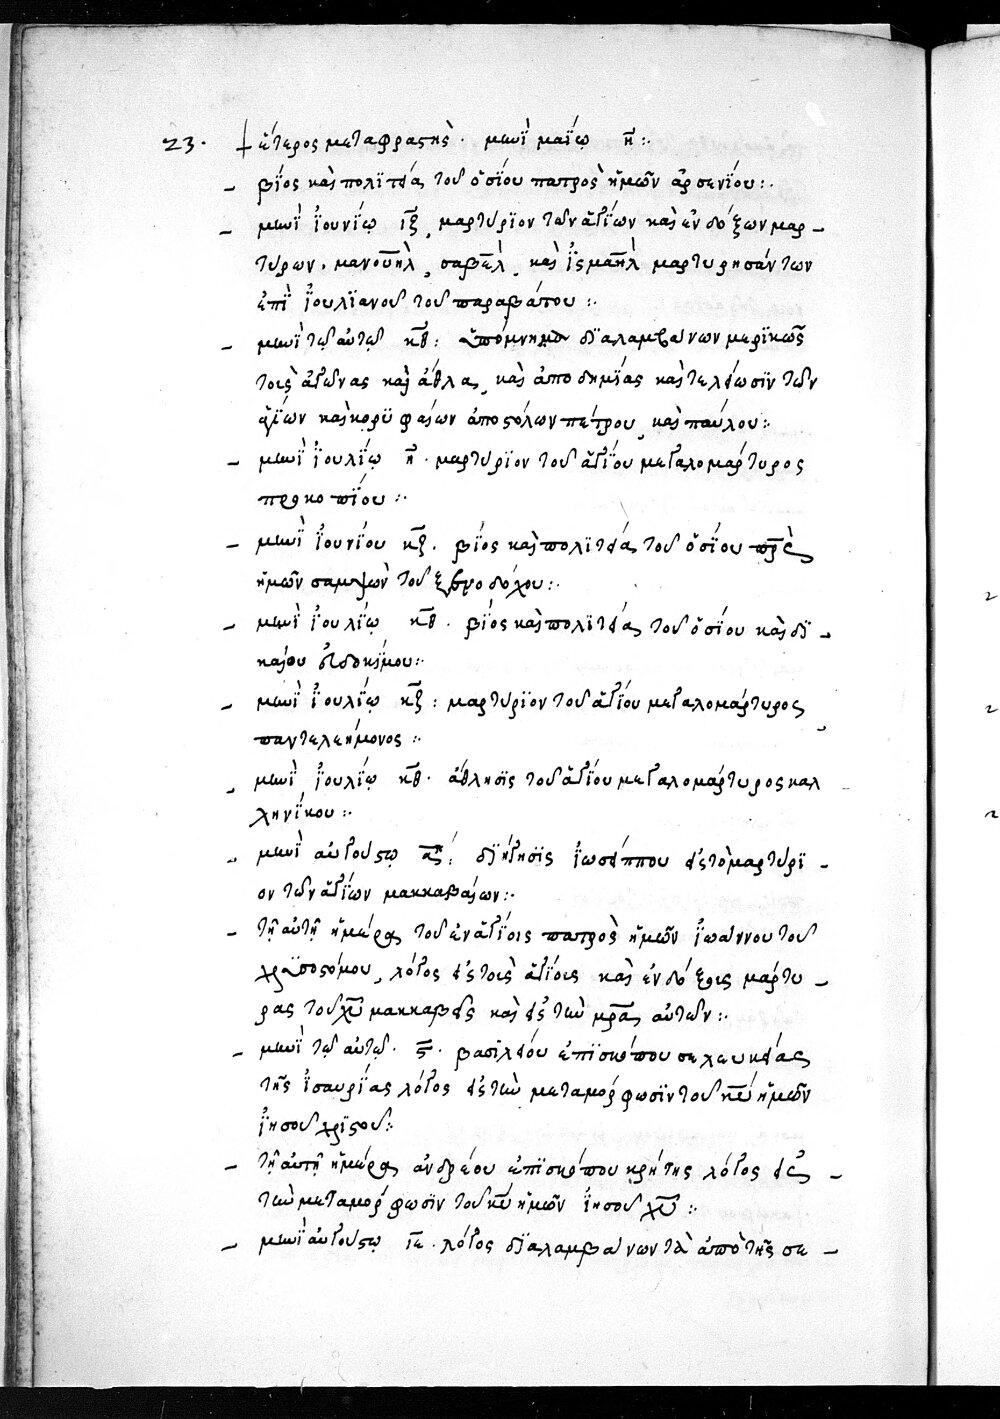 23. † ἕτερος μεταφραστὴς. μηνὶ μαΐῳ η̄:·
– βίος καὶ πολιτεία τοῦ ὁσίου πατρὸς ἡμῶν ἀρσενίου:·
– μηνὶ ἰουνίῳ ιζ̄, μαρτύριον τῶν ἁγίων καὶ ἐνδόξων μαρ–
τύρων, μανουὴλ, σαβὲλ, καὶ ἰσμαὴλ μαρτυρησάντων
ἐπὶ ἰουλιανοῦ τοῦ παραβάτου:·
– μηνὶ τῷ αὐτῷ κθ̄: ὑπόμνημα διαλαμβάνων μερικῶς
τοὺς ἀγῶνας καὶ ἆθλα, καὶ ἀποδημίας καὶ τελείωσιν τῶν
ἁγίων καὶ κορυφαίων ἀποστόλων πέτρου, καὶ παύλου:·
– μηνὶ ἰουλίῳ η̄. μαρτύριον τοῦ ἁγίου μεγαλομάρτυρος
προκοπίου:·
– μηνὶ ἰουνίου κζ̄. βίος καὶ πολιτεία τοῦ ὁσίου πρ̄ς
ἡμῶν σαμψὼν τοῦ ξενοδόχου:·
– μηνὶ ἰουλίῳ κθ̄. βίος καὶ πολιτεία τοῦ ὁσίου καὶ δι–
καίου εὐδοκίμου:·
– μηνὶ ἰουλίῳ κζ̄: μαρτύριον τοῦ ἁγίου μεγαλομάρτυρος
παντελεήμονος:·
– μηνὶ ἰουλίῳ κθ̄. ἄθλησις τοῦ ἁγίου μεγαλομάρτυρος καλ
ληνίκου:·
– μηνὶ αὐγούστῳ ᾱ: διήγησις ἰωσίππου εἰς τὸ μαρτύρι–
ον τῶν ἁγίων μακκαβαίων:·
– τῇ αὐτῇ ἡμέρᾳ τοῦ ἐν ἁγίοις πατρὸς ἡμῶν ἰωάννου τοῦ
χρυσοστόμου, λόγος εἰς τοὺς ἁγίοις καὶ ἐνδόξοις μάρτυ–
ρας τοῦ χ̄υ μακκαβεῖς καὶ εἰς τὴν μρ̄α αὐτῶν:·
– μηνὶ τῷ αὐτῷ. ς̄. βασιλείου ἐπισκόπου σελευκείας
τῆς ἰσαυρίας λόγος εἰς τὴν μεταμόρφωσιν τοῦ κ̄υ ἡμῶν
ἰησοῦ χριστοῦ:·
– τῇ αὐτῇ ἡμέρᾳ ἀνδρέου ἐπισκόπου κρήτης λόγος εἰς–
τὴν μεταμόρφωσιν τοῦ κ̄υ ἡμῶν ἰησοῦ χ̄υ:·
– μηνὶ αὐγούστῳ ιε̄. λόγος διαλαμβάνων τὰ ἀπὸ τῆς σε–